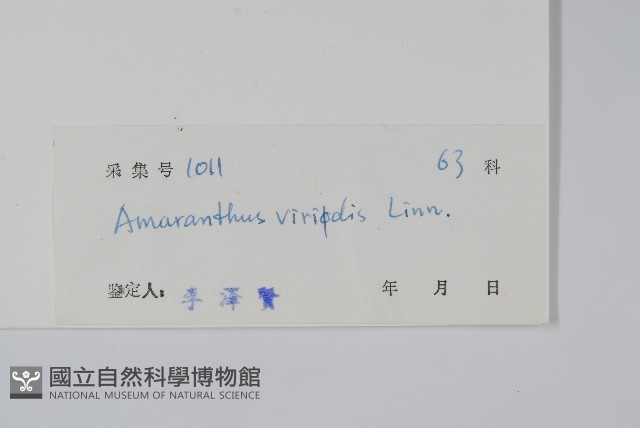 采集号 1011 63 科
Amaranthus viridis Linn.
鉴定人: 李澤賢 年 月 日
國立自然科學博物館
NATIONAL MUSEUM OF NATURAL SCIENCE